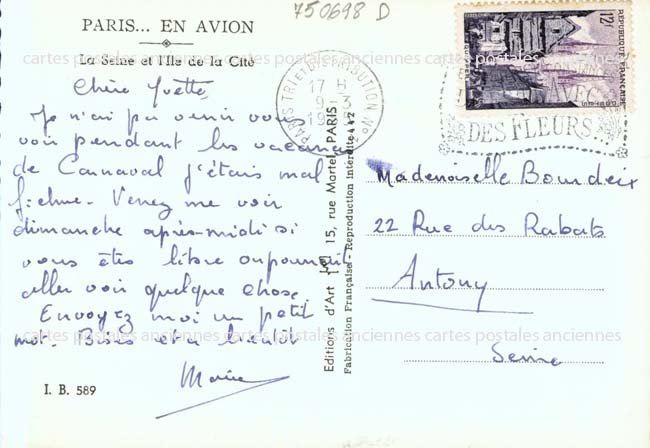 750698 D
PARIS... EN AVION
La Seine et l'Ile de la Cité
Chère Yvette,
Je n'ai pu venir vous
voir pendant les vacances
de Carnaval j'étais mal
fichue. Venez me voir
dimanche après-midi si
vous êtes libre on pourrait
aller voir quelque chose.
Envoyez moi un petit
mot. Bises et a bientôt
Marie
I. B. 589
Editions d'Art 15, rue Martel, PARIS
Fabrication Française - Reproduction interdite 442
PARIS TRI et DISTRIBUTION No
17 H
12F
REPUBLIQUE FRANÇAISE
AVEC
DES FLEURS...
Mademoiselle Bourdeix
22 Rue des Rabats
Antony
Seine
cartes postales anciennes cartes postales anciennes cartes postales anciennes
cartes postales anciennes cartes postales anciennes cartes postales anciennes